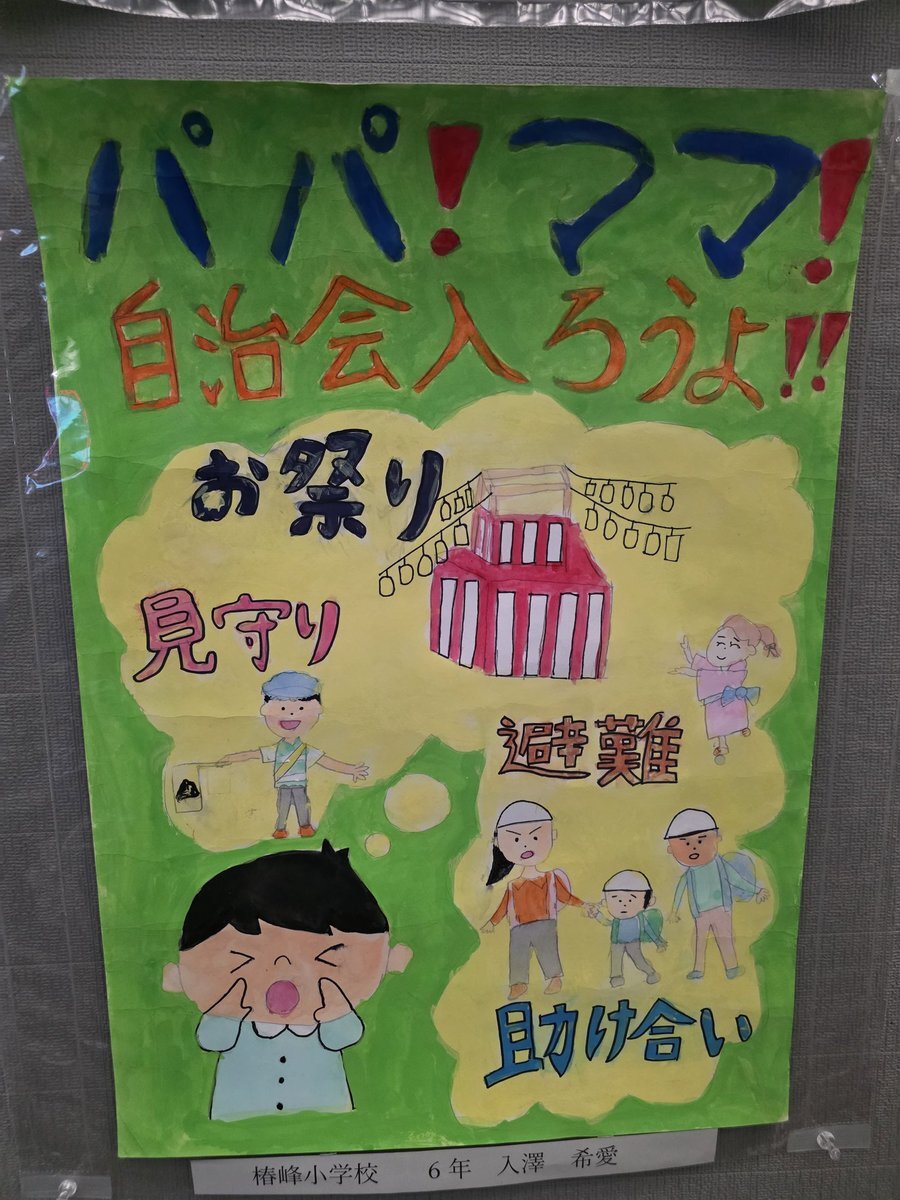 パパ!ママ!
自治会入ろうよ!!
お祭り
見守り
避難
助け合い
椿峰小学校 6年 入澤 希愛